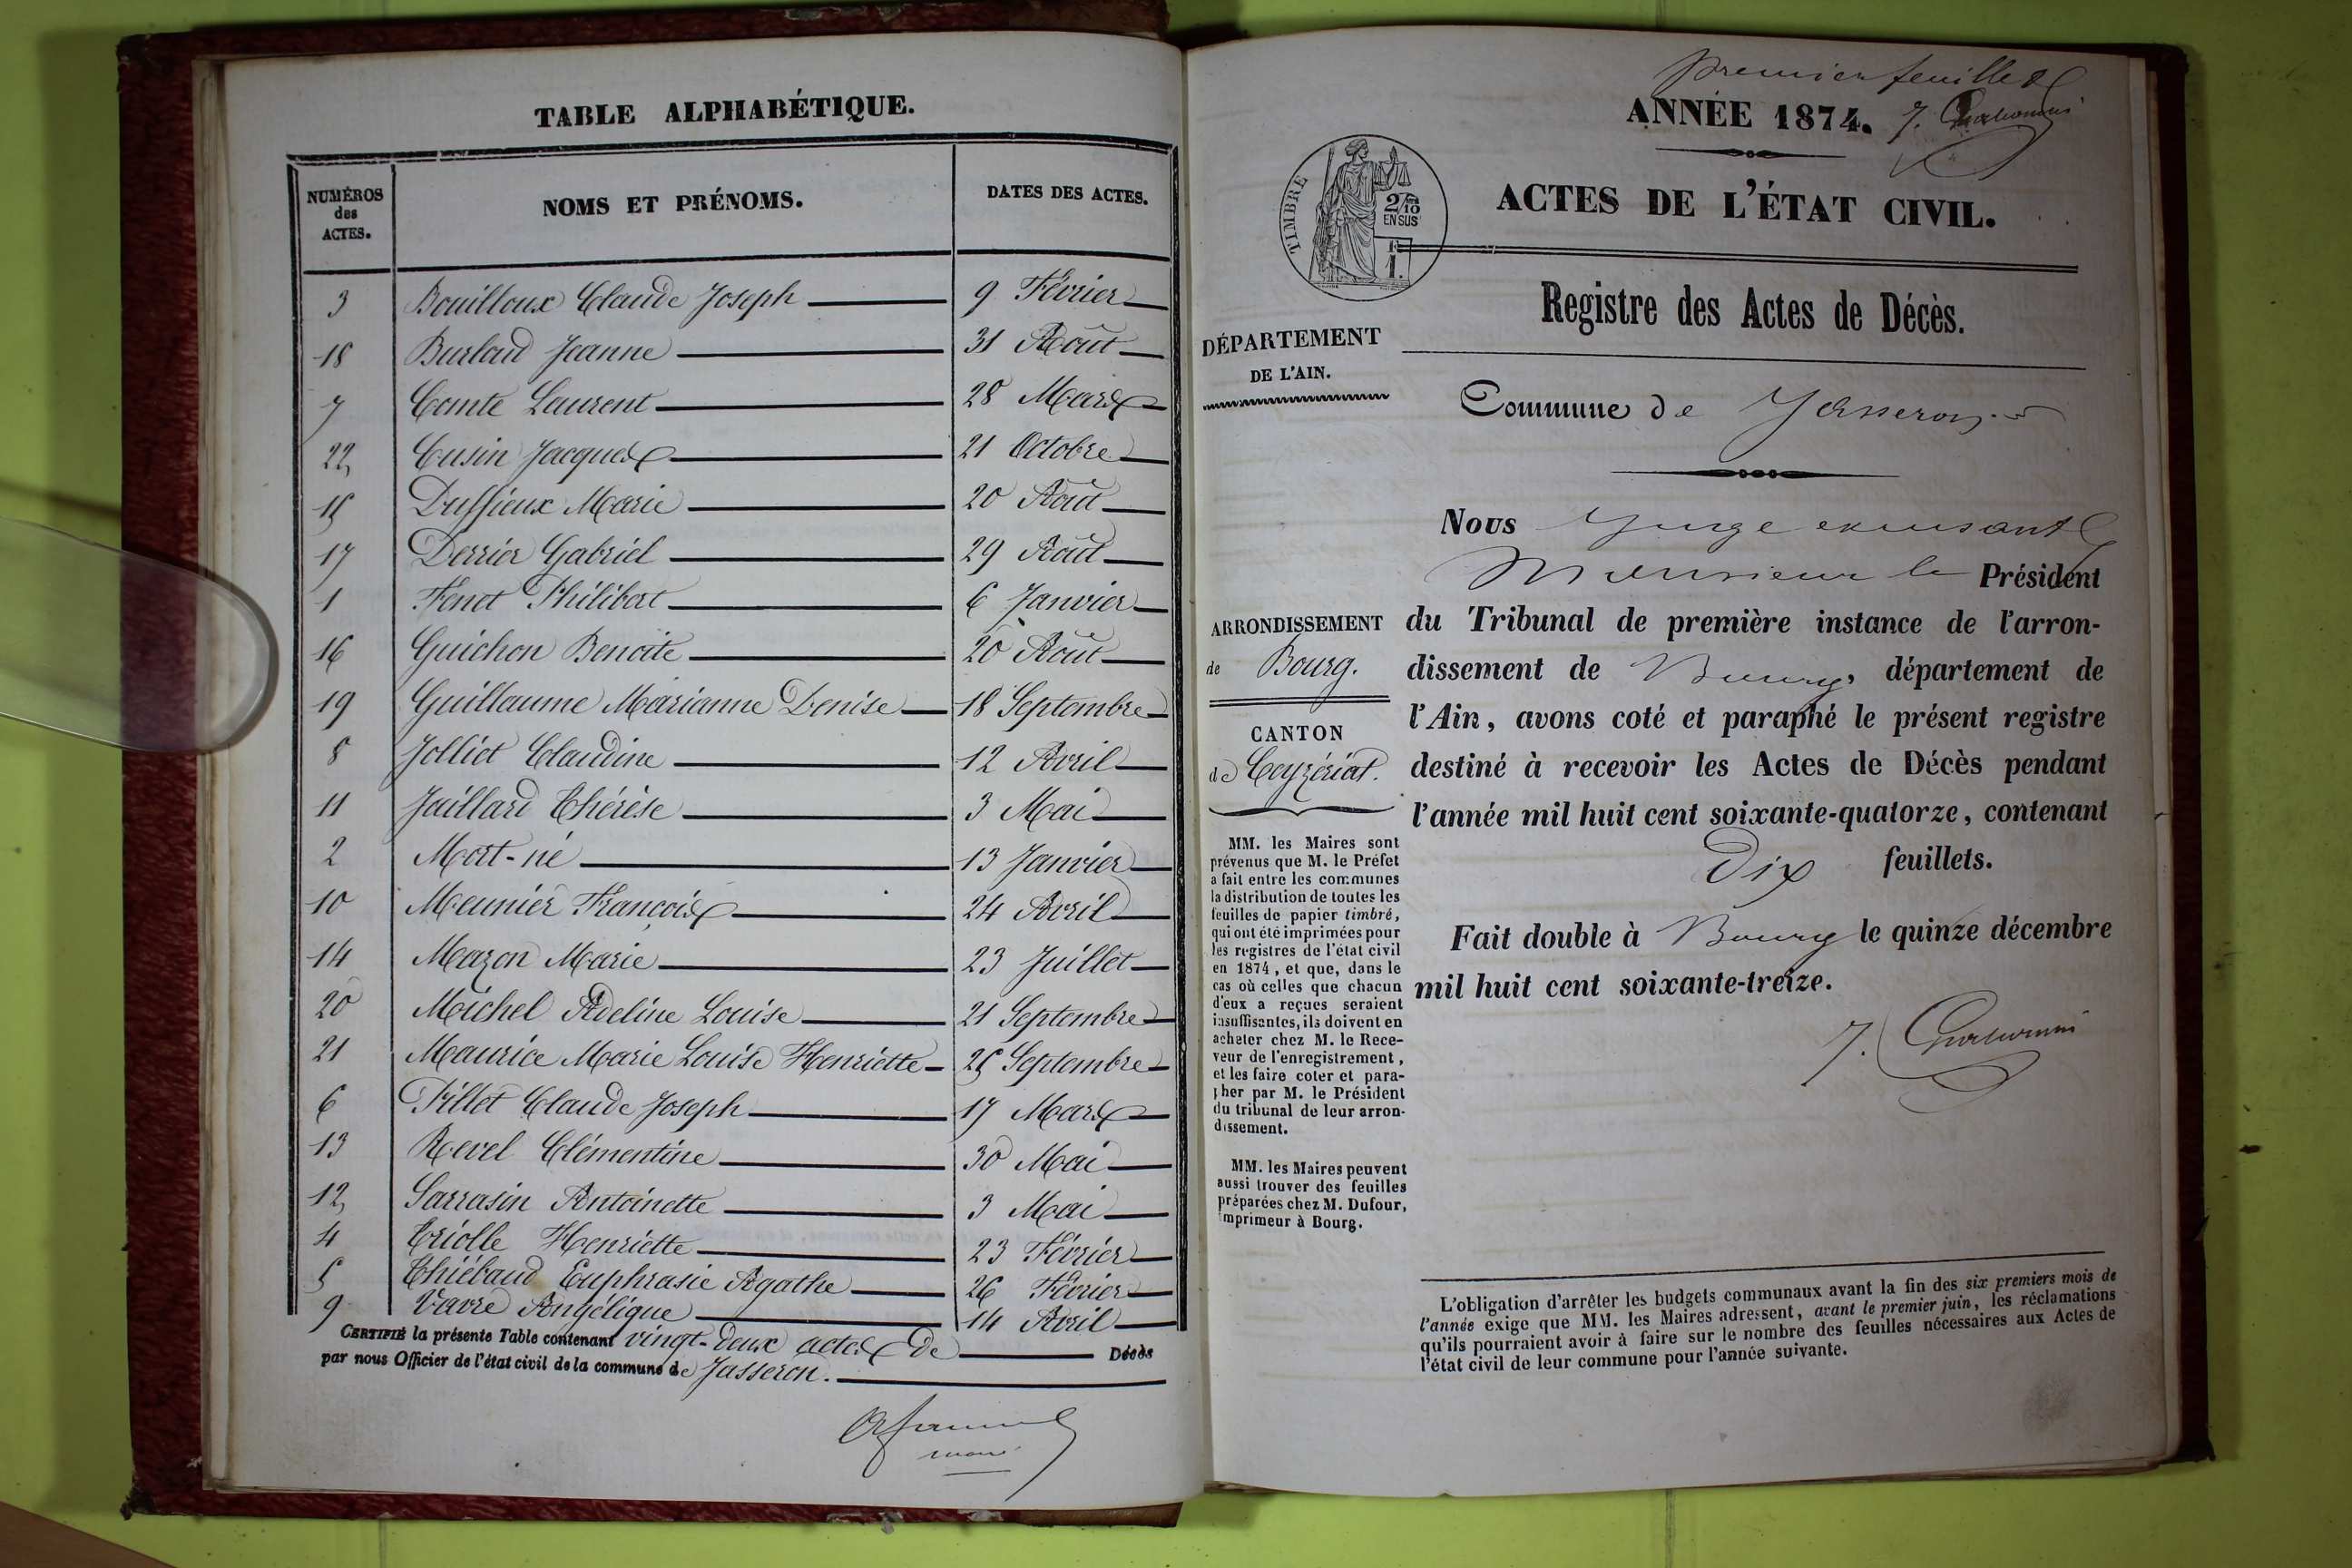 TABLE ALPHABÉTIQUE.
NUMÉROS des ACTES. NOMS ET PRÉNOMS. DATES DES ACTES.
3 Bouilloux Claude Joseph 9 Février
18 Burlaud Jeanne 31 Août
7 Comte Laurent 28 Mars
22 Cusin Jacques 21 Octobre
15 Duffieux Marie 20 Août
17 Derrier Gabriel 29 Août
1 Fenet Philibert 6 Janvier
16 Guichon Benoite 20 Août
19 Guillaume Marianne Denise 18 Septembre
8 Jolliet Claudine 12 Avril
11 Jaillard Thérèse 3 Mai
2 Mort-né 13 Janvier
10 Meunier François 24 Avril
14 Mazon Marie 23 Juillet
20 Michel Adeline Louise 21 Septembre
21 Maurice Marie Louise Henriette 25 Septembre
6 Pillet Claude Joseph 17 Mars
13 Revel Clémentine 30 Mai
12 Sarrasin Antoinette 3 Mai
4 Triolle Henriette 23 Février
5 Thiébaud Euphrasie Agathe 26 Février
9 Vavre Angélique 14 Avril
CERTIFIÉ la présente Table contenant vingt-deux actes de Décès
par nous Officier de l'état civil de la commune de Jasseron.
maire
premier feuillet
ANNÉE 1874.
TIMBRE
2/10
EN SUS
1.
ACTES DE L'ÉTAT CIVIL.
Registre des Actes de Décès.
DÉPARTEMENT
DE L'AIN.
Commune de Jasseron
Nous Juge excusant
Monsieur le Président
du Tribunal de première instance de l'arron-
dissement de Bourg, département de
l'Ain, avons coté et paraphé le présent registre
destiné à recevoir les Actes de Décès pendant
l'année mil huit cent soixante-quatorze, contenant
Dix feuillets.
Fait double à Bourg le quinze décembre
mil huit cent soixante-treize.
ARRONDISSEMENT
de Bourg.
CANTON
de Ceyzériat.
MM. les Maires sont
prévenus que M. le Préfet
a fait entre les communes
la distribution de toutes les
feuilles de papier timbré,
qui ont été imprimées pour
les registres de l'état civil
en 1874, et que, dans le
cas où celles que chacun
d'eux a reçues seraient
insuffisantes, ils doivent en
acheter chez M. le Rece-
veur de l'enregistrement,
et les faire coter et para-
pher par M. le Président
du tribunal de leur arron-
dissement.
MM. les Maires peuvent
aussi trouver des feuilles
préparées chez M. Dufour,
imprimeur à Bourg.
L'obligation d'arrêter les budgets communaux avant la fin des six premiers mois de
l'année exige que MM. les Maires adressent, avant le premier juin, les réclamations
qu'ils pourraient avoir à faire sur le nombre des feuilles nécessaires aux Actes de
l'état civil de leur commune pour l'année suivante.